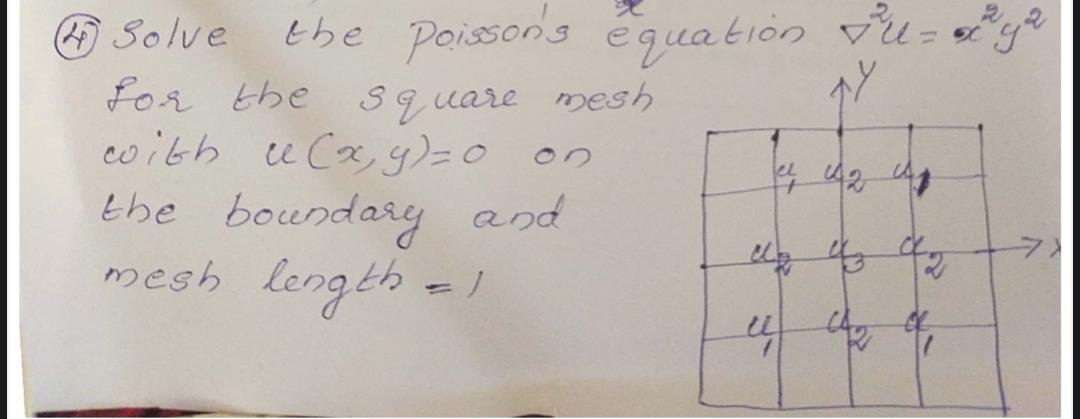 ④ Solve the poisson's equation ∇²u = x²y²
for the square mesh
with u(x,y)=0 on
the boundary and
mesh length = 1
Y
u₁ u₂ u₁
u₂ u₃ u₂ X
u₁ u₂ u₁